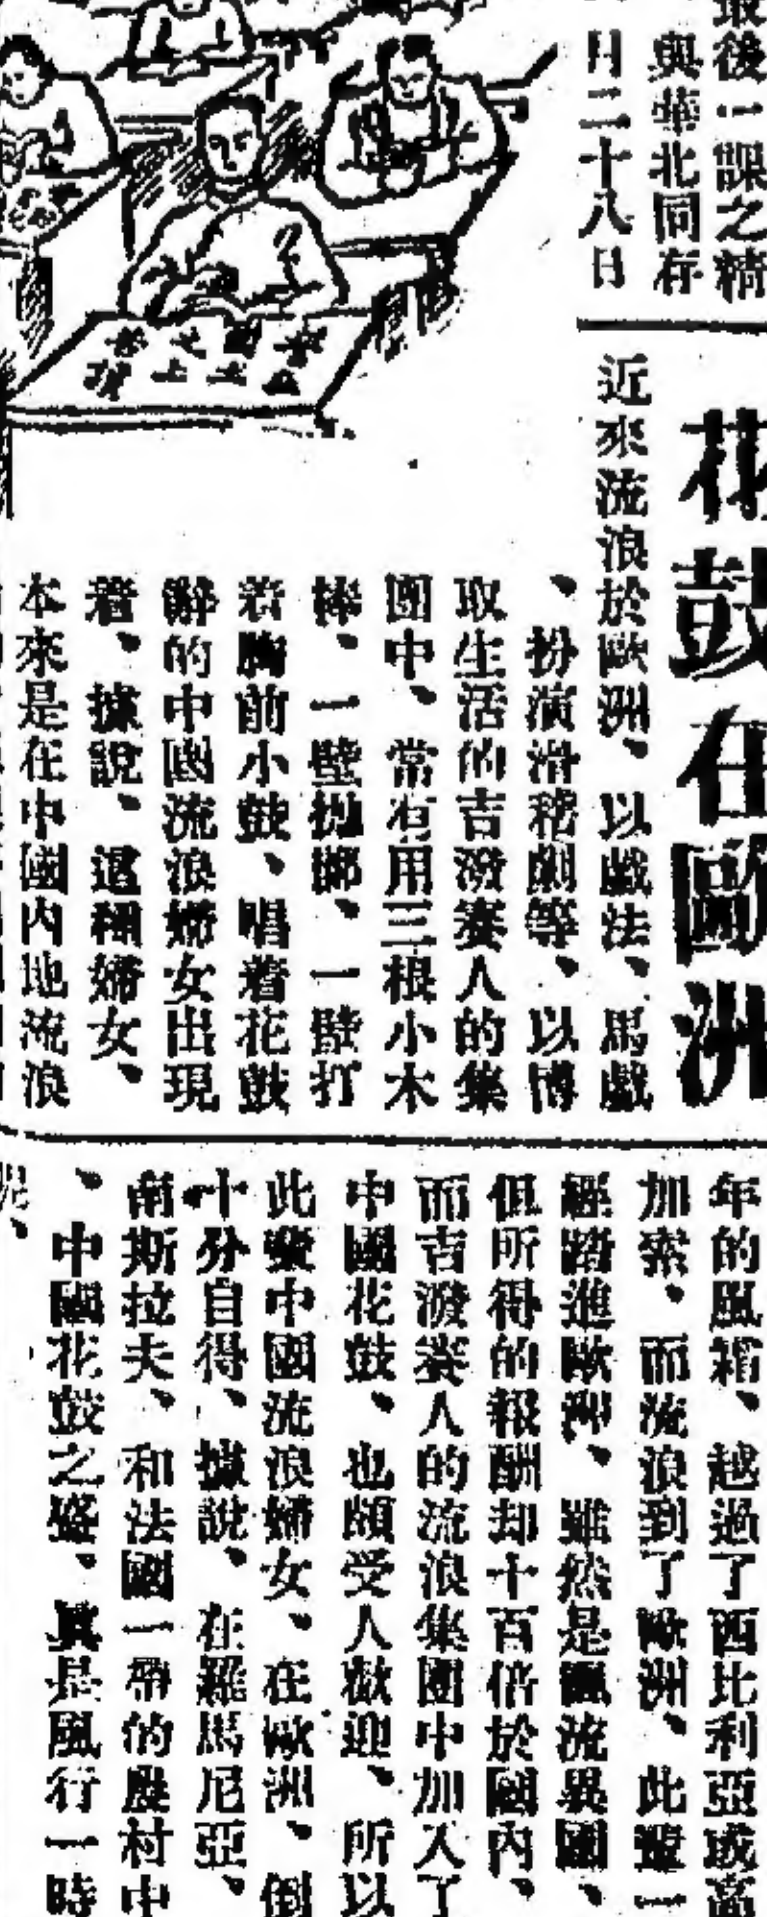 最後一課之精
與華北同存
月二十八日
花鼓在歐洲
近來流浪於歐洲、以戲法、馬戲
、扮演滑稽劇等、以博
取生活的吉潑賽人的集
團中、常有用三根小木
棒、一壁拋擲、一壁打
着胸前小鼓、唱着花鼓
辭的中國流浪婦女出現
着、據說、這種婦女、
本來是在中國內地流浪
年的風霜、越過了西比利亞或高
加索、而流浪到了歐洲、此輩一
經踏進歐洲、雖然是飄流異國、
但所得的報酬却十百倍於國內、
而吉潑賽人的流浪集團中加入了
中國花鼓、也頗受人歡迎、所以
此輩中國流浪婦女、在歐洲、倒
十分自得、據說、在羅馬尼亞、
南斯拉夫、和法國一帶的農村中
、中國花鼓之盛、眞是風行一時